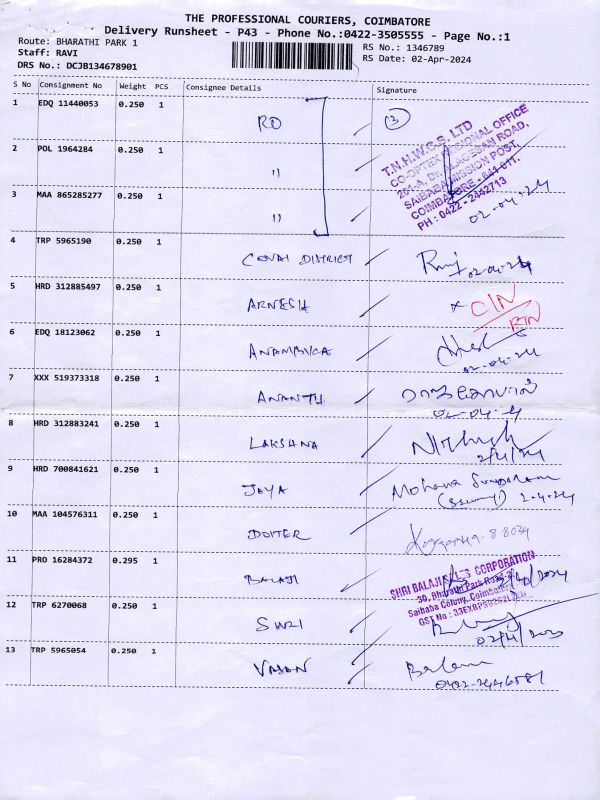 THE PROFESSIONAL COURIERS, COIMBATORE
Delivery Runsheet - P43 - Phone No.:0422-3505555 - Page No.:1
Route: BHARATHI PARK 1
RS No.: 1346789
Staff: RAVI
RS Date: 02-Apr-2024
DRS No.: DCJB134678901
S No Consignment No Weight PCS Consignee Details Signature
1 EDQ 11440053 0.250 1 RO 13
T.N.H.W.C.S. LTD
CO-OPTEX REGIONAL OFFICE
SAIBABA MISSION POST,
COIMBATORE - 641 011.
PH : 0422 - 2442713
2 POL 1964284 0.250 1 "
3 MAA 865285277 0.250 1 " 02-04-24
4 TRP 5965190 0.250 1 DISTRICT 02-04-24
5 HRD 312885497 0.250 1 ARNESH x
RTN
6 EDQ 18123062 0.250 1 ANAMBICA
02-04-24
7 XXX 519373318 0.250 1 ANANTH
8 HRD 312883241 0.250 1 LAKSHNA
2/4/24
9 HRD 700841621 0.250 1 JAYA Mohana Sundaram
2-4-24
10 MAA 104576311 0.250 1
11 PRO 16284372 0.295 1 BALAJI
SHRI BALAJI SALES CORPORATION
30, Bharathi Park Road
Saibaba Colony, Coimbatore
12 TRP 6270068 0.250 1 SHRI
13 TRP 5965054 0.250 1 VASAN